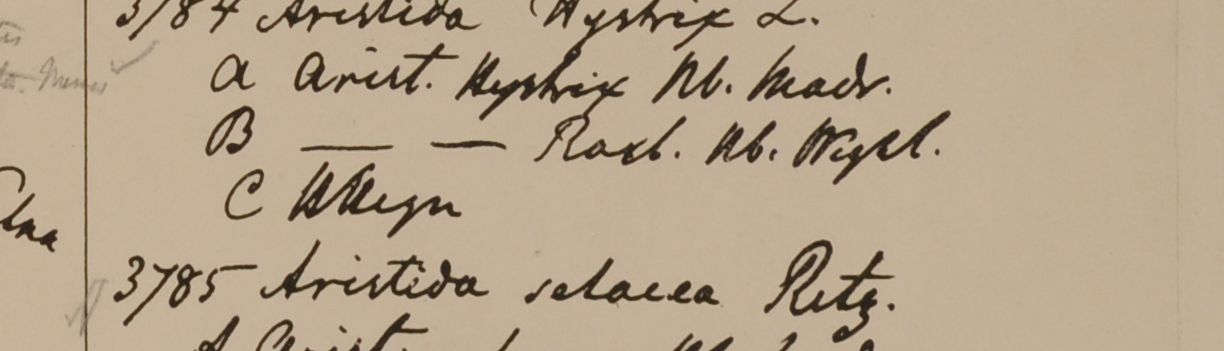 3784 Aristida Hystrix L.
A Arist. Hystrix Hb. Madr.
B — — Roxb. Hb. Wight.
C HHeyn
3785 Aristida setacea Retz.